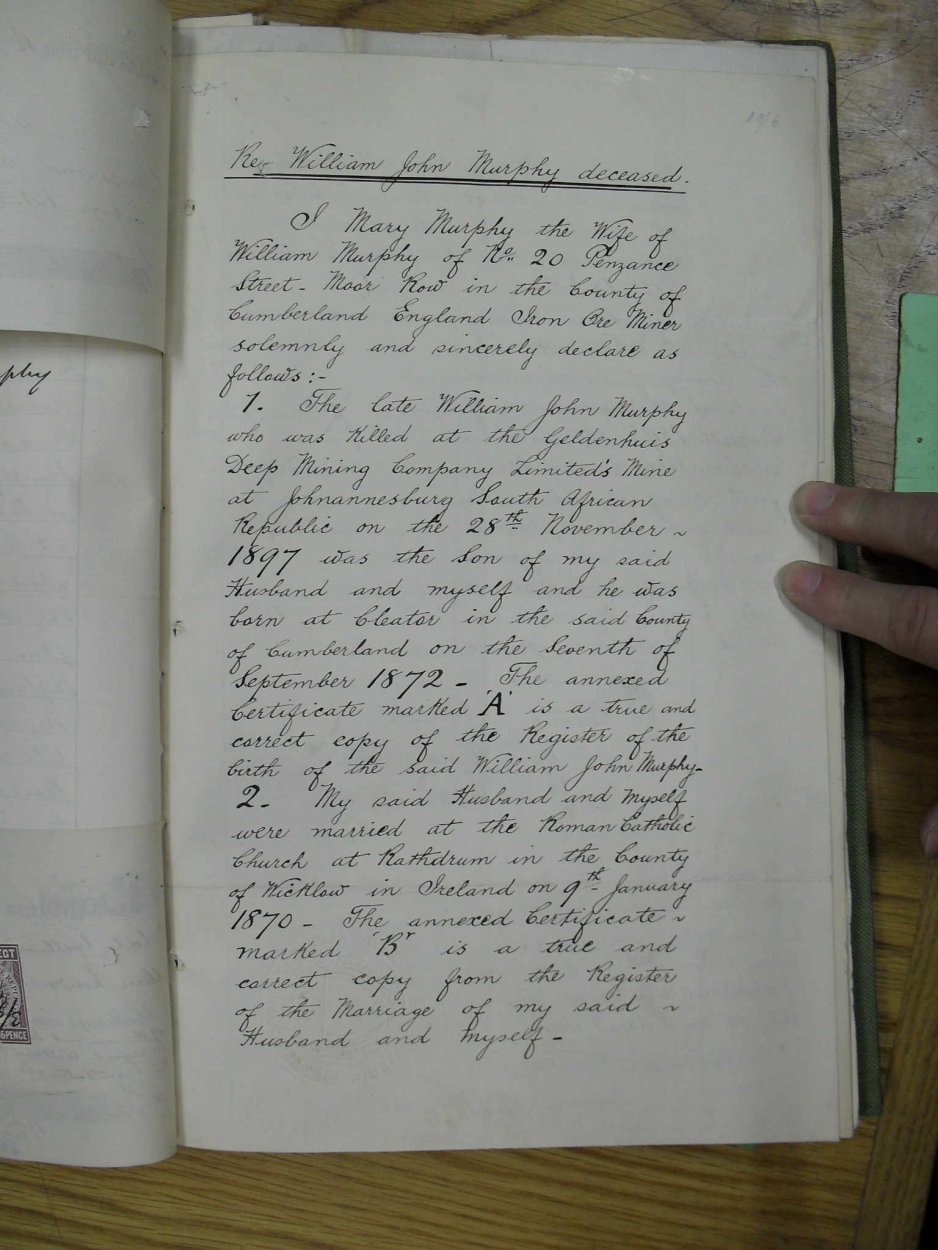 Re William John Murphy deceased.
I Mary Murphy the Wife of
William Murphy of No. 20 Penzance
Street - Moor Row in the County of
Cumberland England Iron Ore Miner
solemnly and sincerely declare as
follows:-
1. The late William John Murphy
who was killed at the Geldenhuis
Deep Mining Company Limited's Mine
at Johnannesburg South African
Republic on the 28th November ~
1897 was the Son of my said
Husband and myself and he was
born at Cleator in the said County
of Cumberland on the Seventh of
September 1872 - The annexed
Certificate marked 'A' is a true and
correct copy of the Register of the
birth of the said William John Murphy-
2 - My said Husband and Myself
were married at the Roman Catholic
Church at Rathdrum in the County
of Wicklow in Ireland on 9th January
1870 - The annexed Certificate ~
marked "B" is a true and
correct copy from the Register
of the Marriage of my said ~
Husband and Myself -
phy
ECT
6PENCE